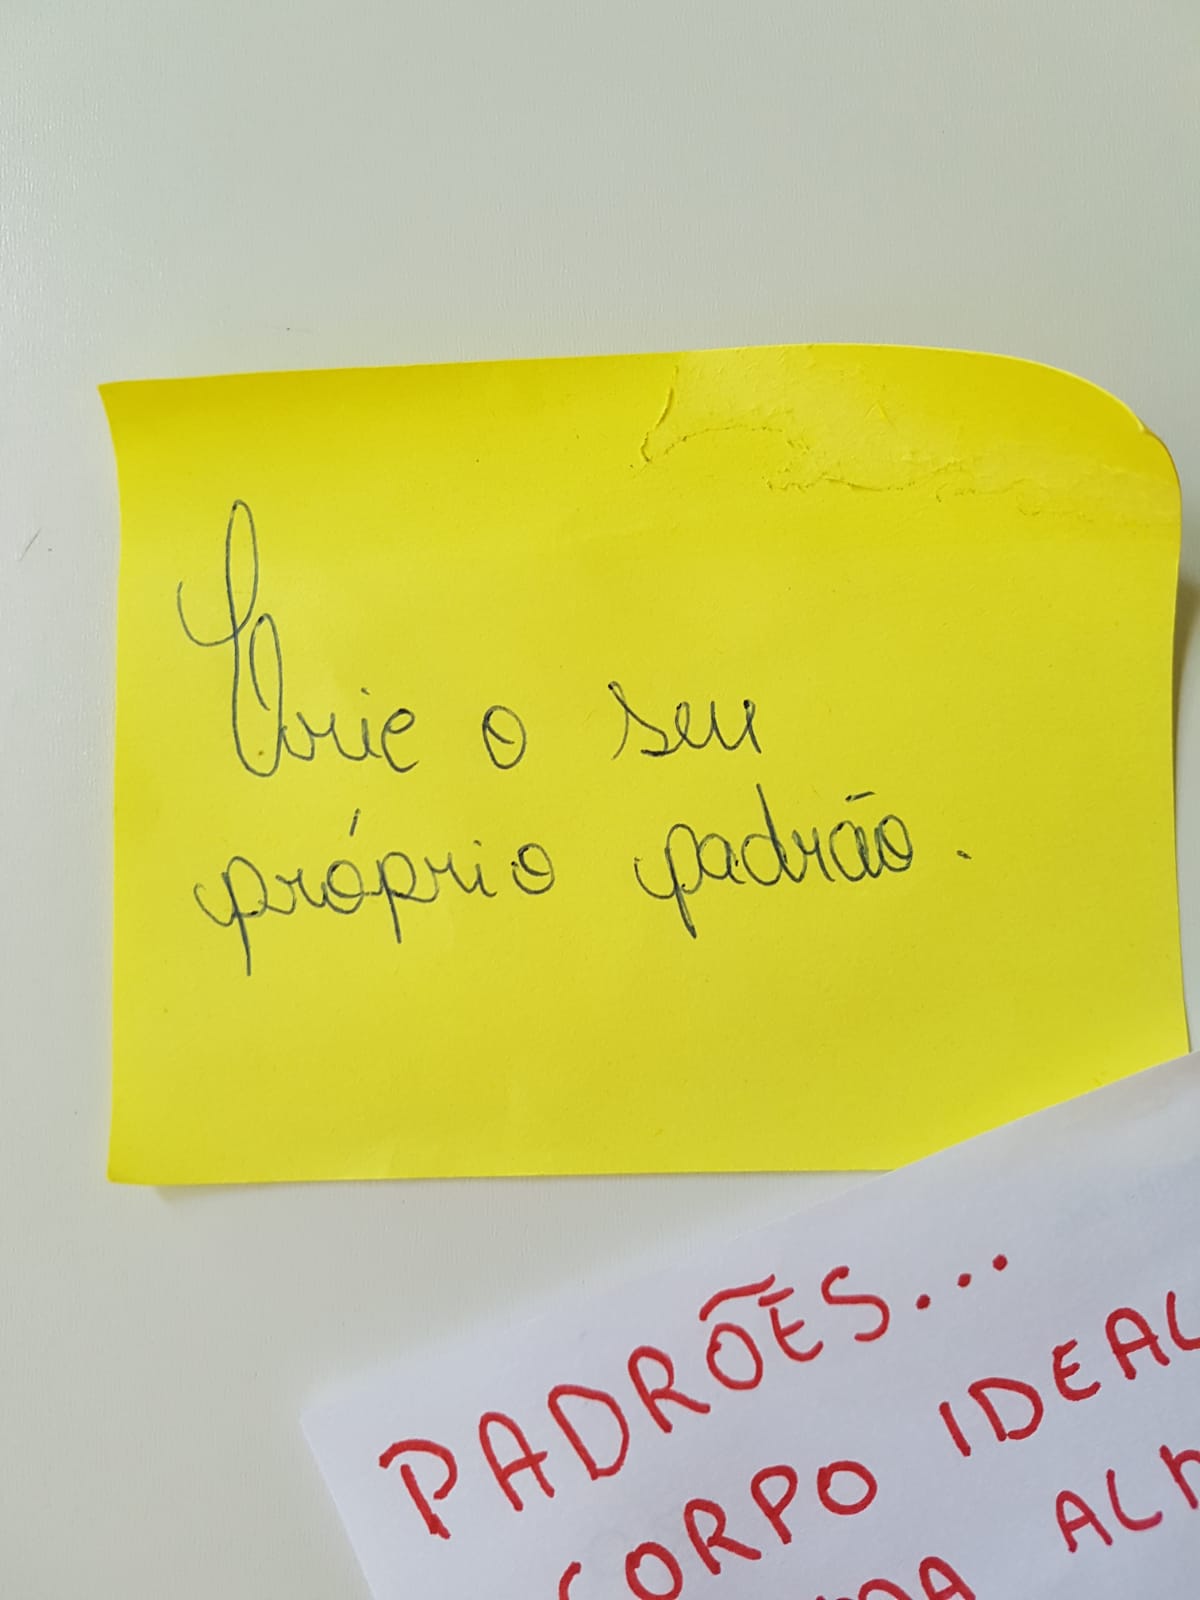 Crie o seu
próprio padrão.
PADRÕES...
CORPO IDEAL